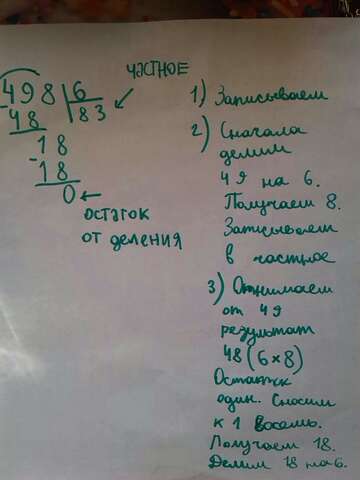 частное
498 6
-48 83
18
-18
0
остаток
от деления
1) Записываем
2) Сначала
делим
49 на 6.
Получаем 8.
Записываем
в частное
3) Отнимаем
от 49
результат
48 (6×8)
Остаток
один. Сносим
к 1 восемь.
Получаем 18.
Делим 18 на 6.